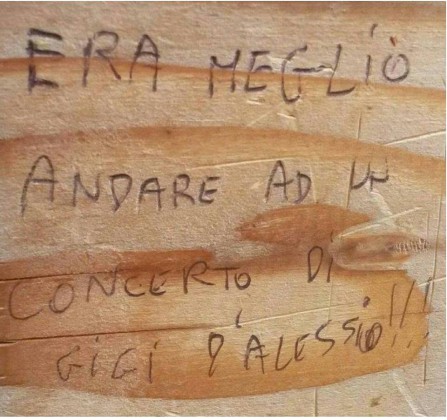 ERA MEGLIO
ANDARE AD UN
CONCERTO DI
GIGI D'ALESSIO!!